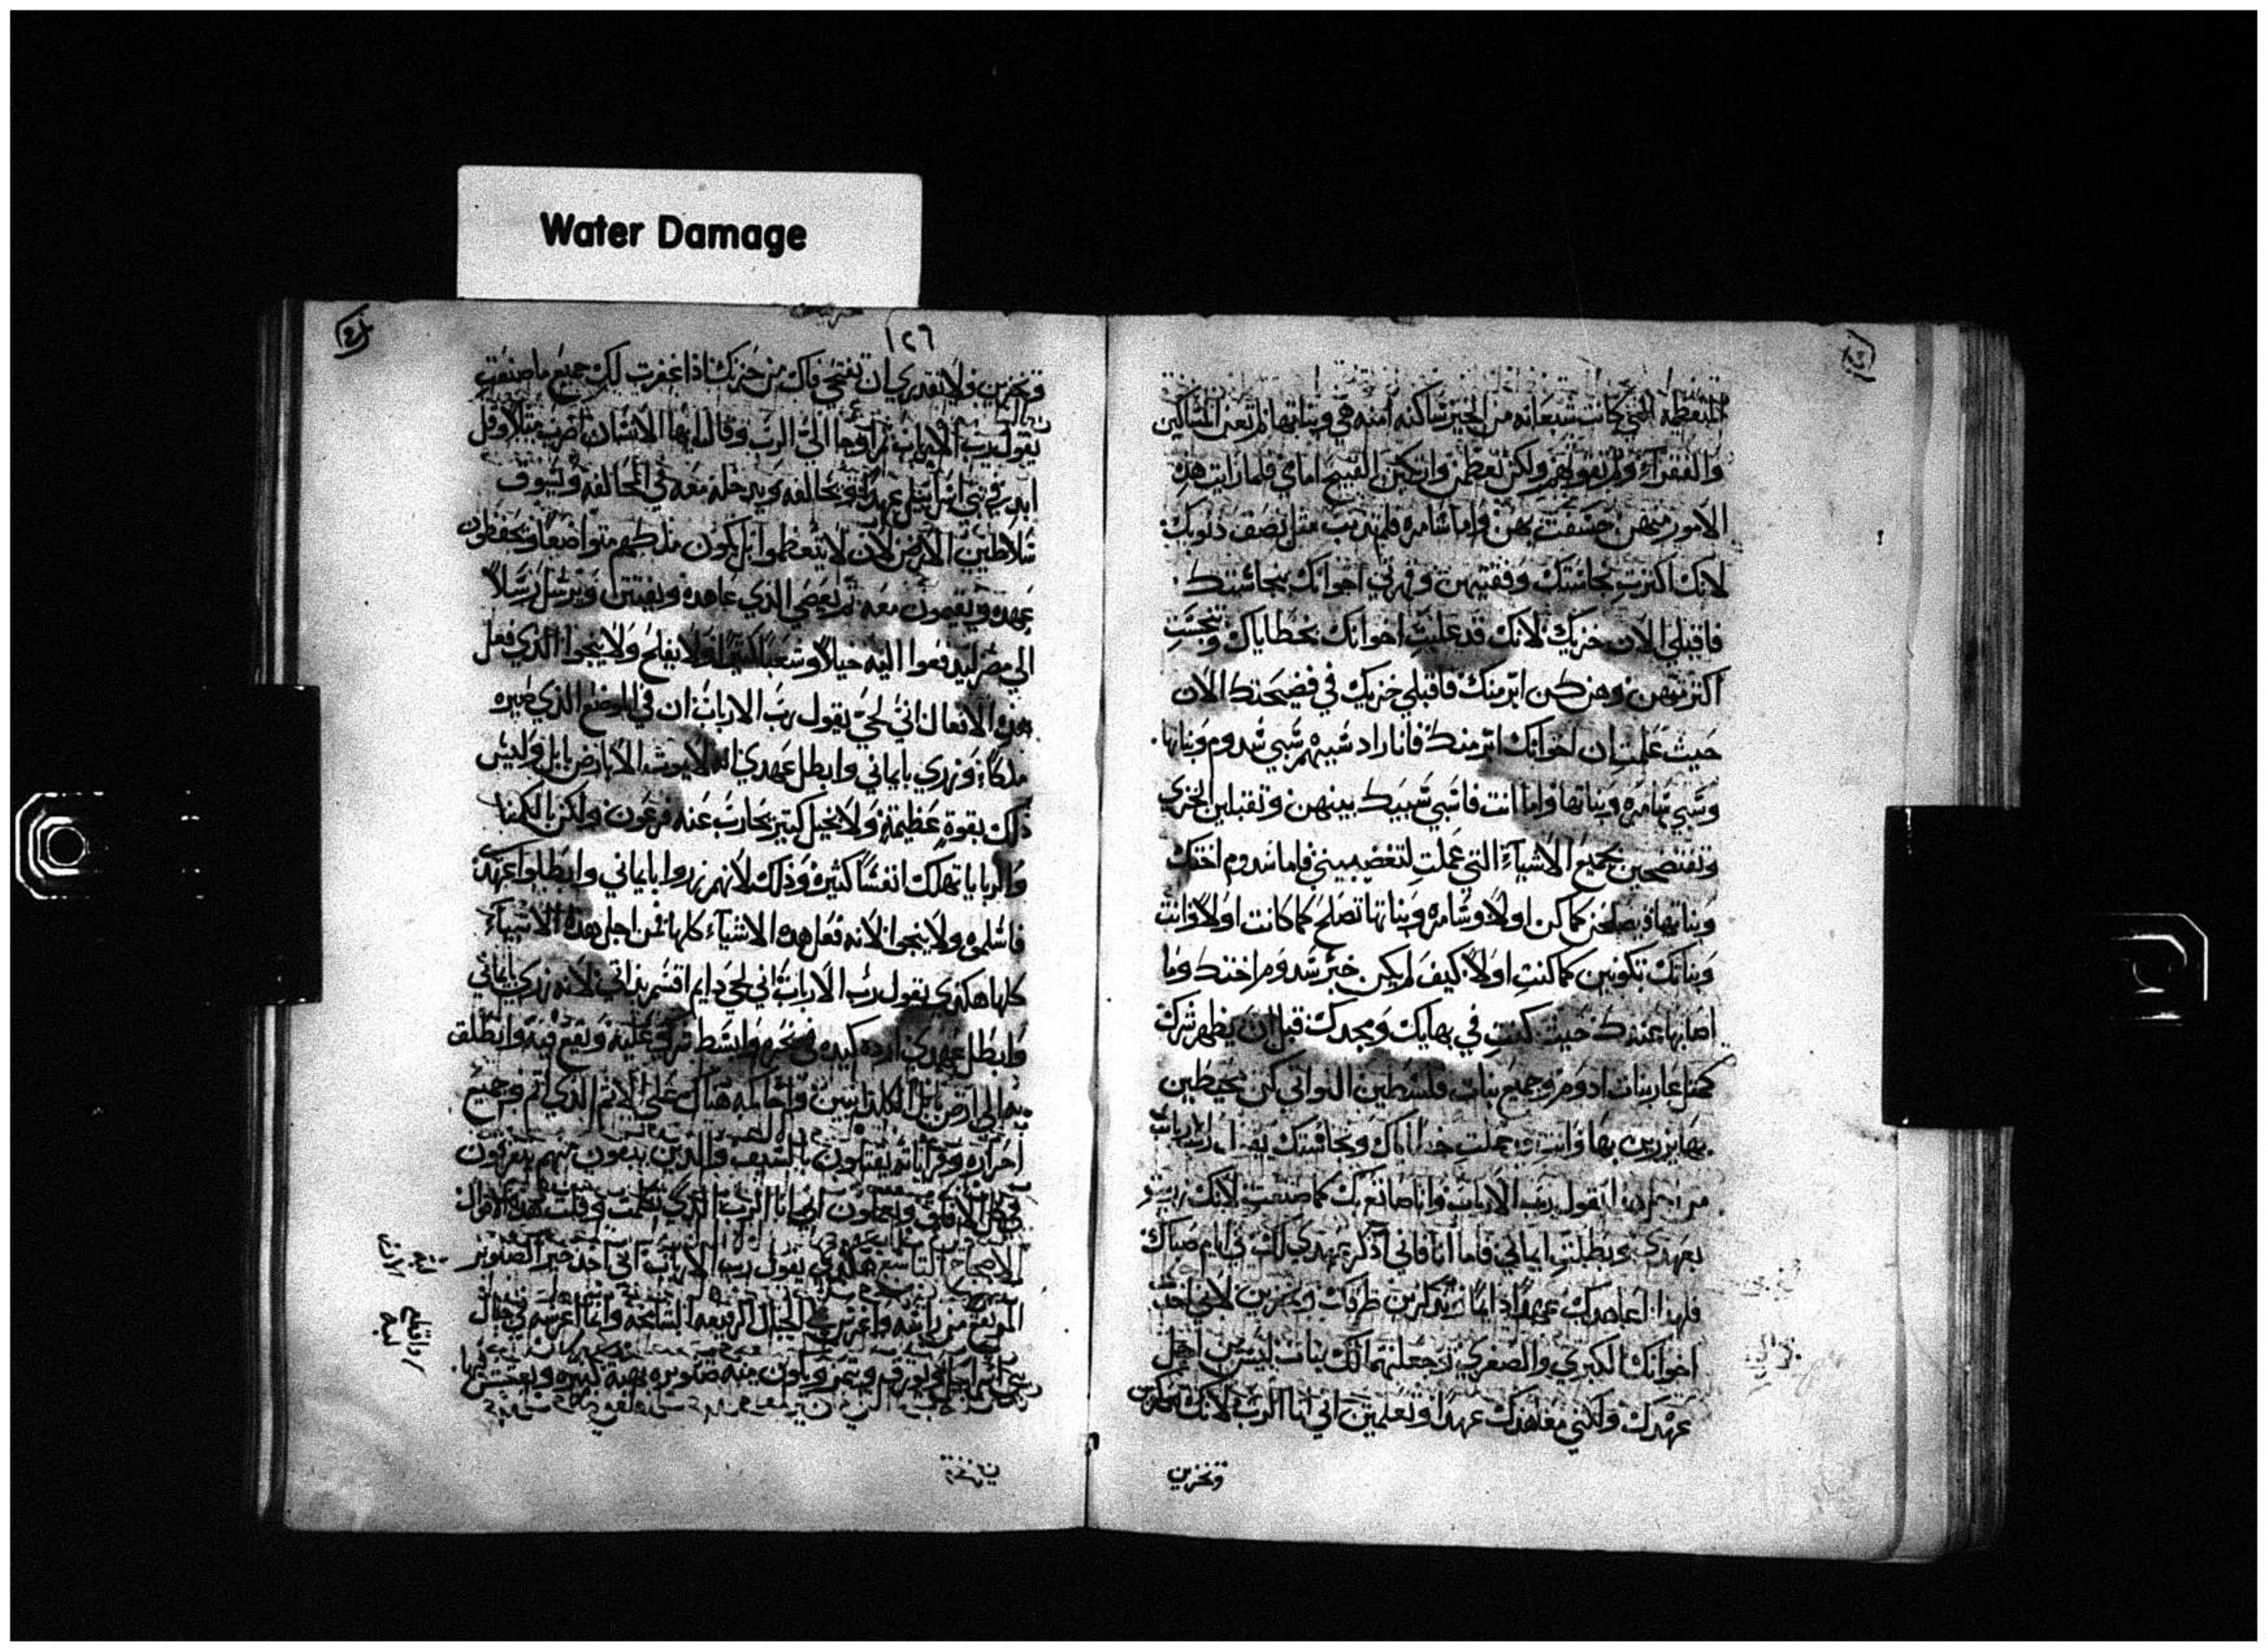 Water Damage
المتعظمة التي كانت شبعانه من الخبز ساكنه امنه هي وبناتها لم تعن المساكين
والفقرآء ولم تقويهم ولكن تعظمن وارتكبن القبيح امامي فلما رايت هذه
الامور منهن خسفت بهن واما شامره فلم تذنب مثل نصف ذنوبك
لانك اكثرت نجاستك وفقتيهن وقهرتي اخواتك بنجاستك
فاقبلي الان خزيك لانك قد غلبت اخواتك بخطاياك وتنجست
اكثر منهن وهن كن ابر منك فاقبلي خزيك في فضيحتك الان
حيث علمت ان اخواتك ابر منك فانا راد سبيهم سبي سدوم وبناتها
وسبي شامره وبناتها واما انت فاسبي سبيك بينهن وتقبلين الخزي
وتفتضحين بجميع الاشيآء التي عملت لتغضبيني فاما سدوم اختك
وبناتها فيصلحن كما كن اولاً وشامره وبناتها تصلح كما كانت اولاً وانت
وبناتك تكونين كما كنت اولاً كيف لم يكن خبر سدوم اختك وما
اصابها عندك حيث كنت في بهايك ومجدك قبل ان يظهر شرك
كمثل عار بنات ادوم وجميع بنات فلسطين اللواتي كن يحطن
بها يزرين بها وانت عملت خطاياك ونجاستك يقول رب الارباب
من اجل هذا يقول رب الارباب وانا صانع بك كما صنعت لانك زريت
بعهدي وبطلت ايماني فاما انا فاني اذكر عهدي لك في ايام صباك
فلهذا اعاهدك عهداً دايماً وتذكرين طرقك وتخزين لاني اخذ
اخواتك الكبرى والصغرى وجعلتهما لك بنات ليس من اجل
عهدك ولكني معاهدك عهداً وتعلمين اني انا الرب لانك تذكرين
وتخزين
١٢٦
وتخزين ولا تقدري ان تفتحي فاك من خزيك اذا غفرت لك جميع ما صنعت
يقول رب الارباب ثم اوحا الي الرب وقال ايها الانسان اضرب مثلاً وقل
عهده ويقومون معه ثم يعصي الذي عاهده ويرسل رسلاً
الي مصر ليدفعوا اليه خيلاً وشعباً كثيراً ولا يفلح ولا ينجوا الذي فعل
هذه الافعال اني لحي يقول رب الارباب ان في الموضع الذي صيره
ملكاً وزري بايماني وابطل عهدي انه لا يموت الا بارض بابل وليس
ذلك بقوة عظيمة ولا بخيل كثير يحارب عنه فرعون ولكن بالكمنا
والربايا تهلك انفساً كثيرة وذلك لانهم زروا بايماني وابطلوا عهدي
فاسلموه ولا ينجوا لانه فعل هذه الاشيآء كلها فمن اجل هذه الاشيآء
كلها هكذي يقول رب الارباب اني لحي دايم اقسم بذاتي لانه زري بايماني
وابطل عهدي ارد كيده في نحره وابسط شركي عليه ويقع فيه وانطلق
به الي ارض بابل الكلدانيين واحاكمه هناك على الاثم الذي اثم وجميع
احراره وقراباته يقتلون بالسيف والذين يبقون منهم يتفرقون
في كل الافاق ويعلمون اني انا الرب الذي تكلمت وقلت هذه الاقوال
الاصحاح التاسع هكذي يقول رب الارباب اني اخذ خير الصنوبر
المرتفع من راسه واغرس في الجبال الرفيعه الشامخه وانا اغرسه في جبال
بني اسراييل ويورق ويثمر ويكون منه صنوبره بهية كبيره ويعشش فيها